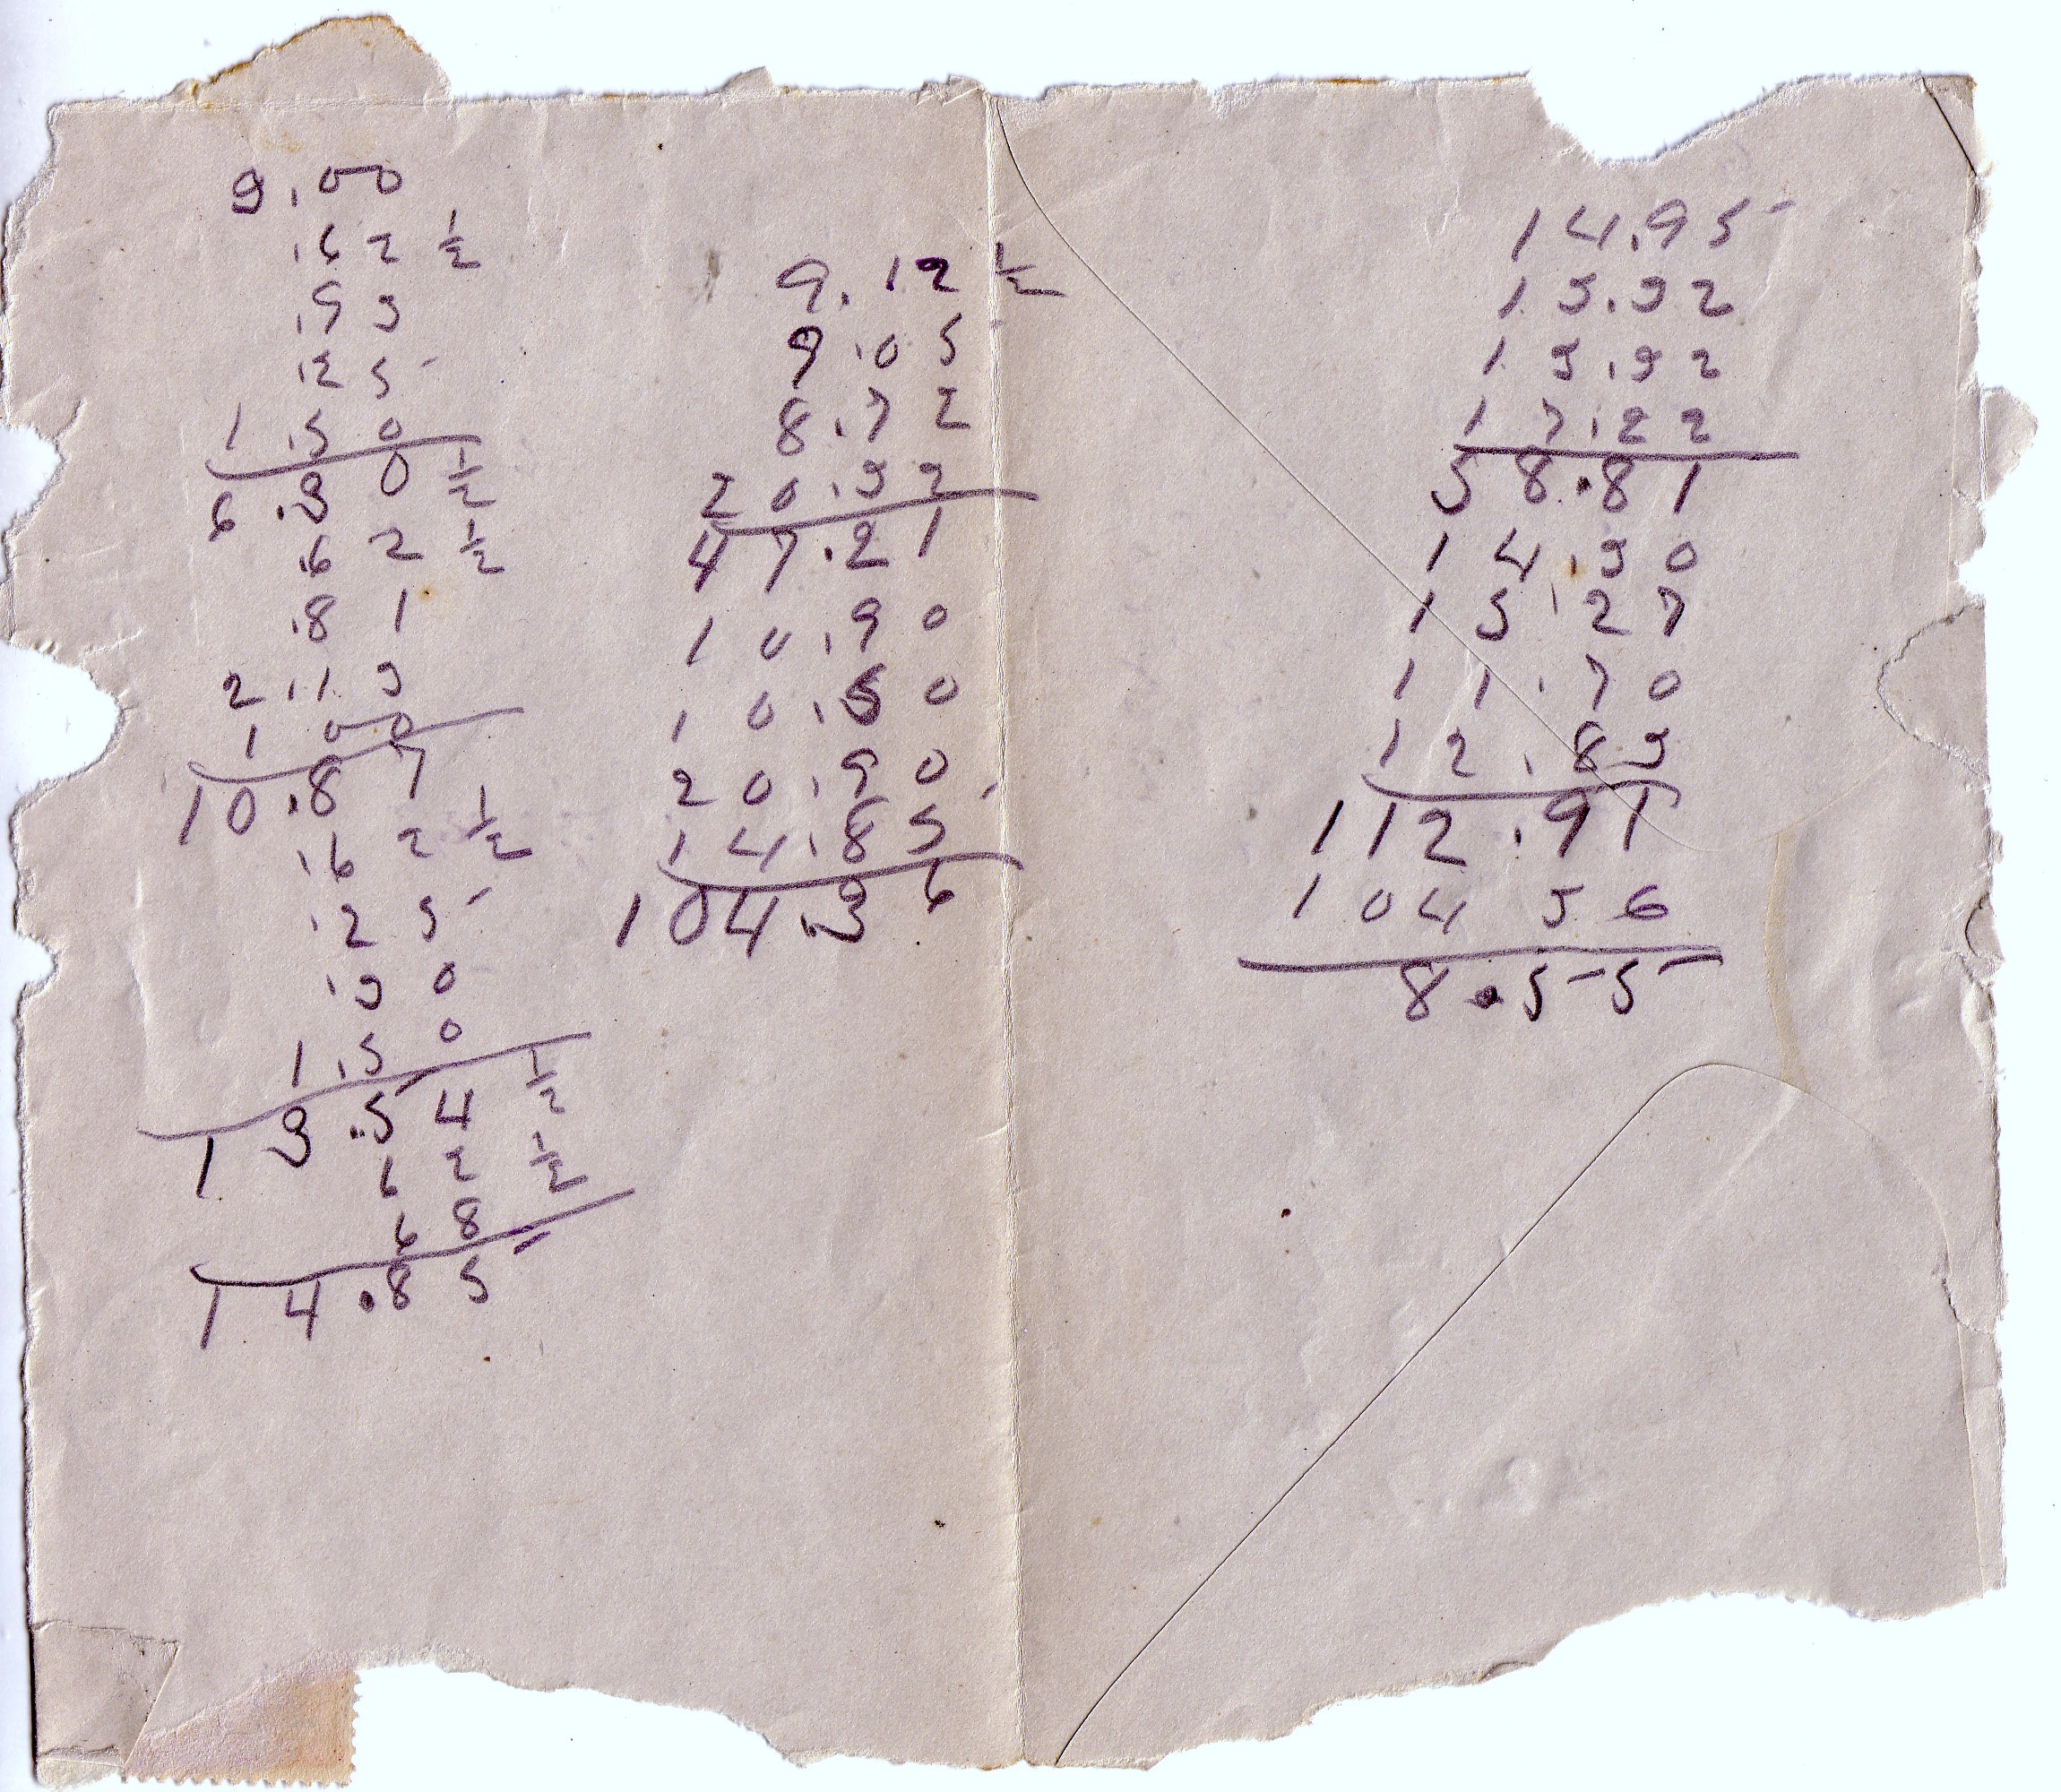 3.00
.62 1/2
.93
.25
1.50
6.30 1/2
.62 1/2
.81
2.13
1 00
10.87
.62 1/2
.25
.30
1.50
13.54 1/2
62 1/2
68
14.85
9.12 1/2
9.05
8.72
20.32
47.21
10.90
10.50
20.90
14.85
104.36
14.95
13.32
13.32
17.22
58.81
14.30
15.27
11.70
12.83
112.91
104 36
8.55